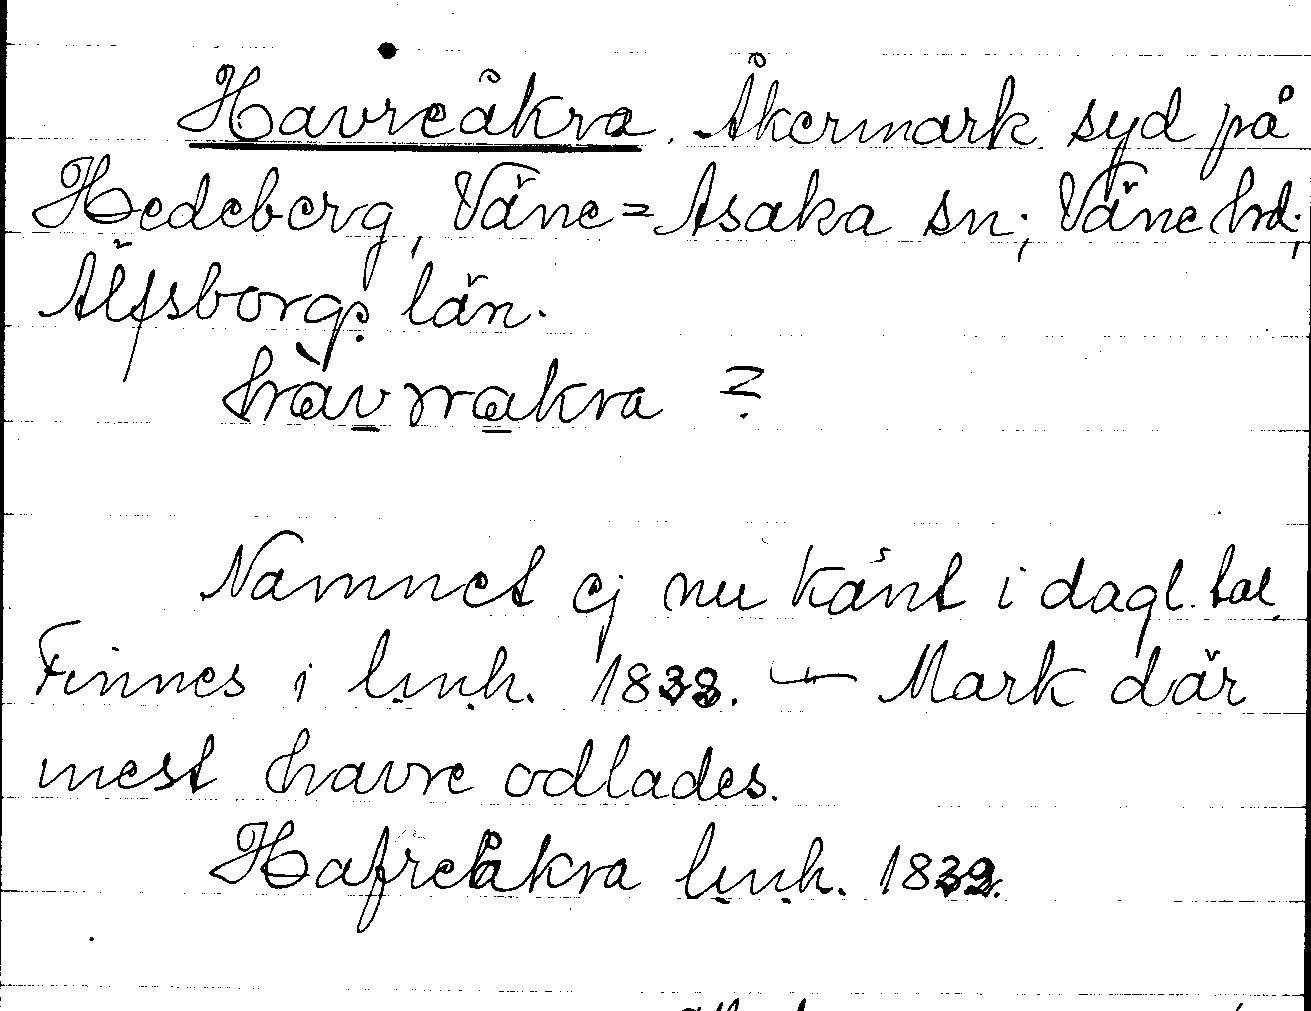 Havreåkra. Åkermark syd på
Hedeberg, Väne=Åsaka sn; Väne hd;
Älfsborgs län.
hàvrråkra ?
Namnet ej nu känt i dagl. tal.
Finnes i l.u.h. 1832. — Mark där
mest havre odlades.
Hafreåkra l.u.h. 1832.